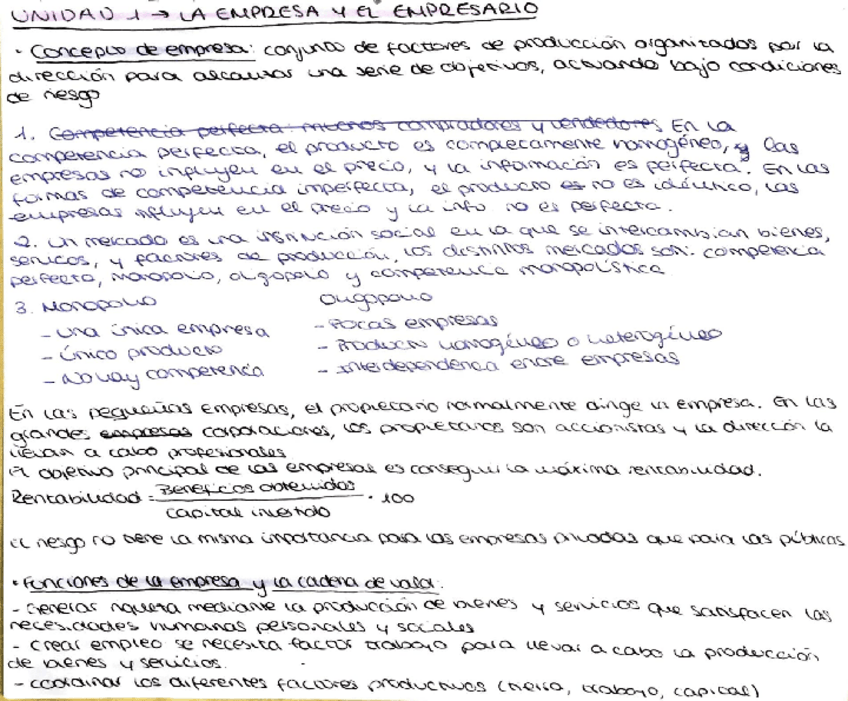 UNIDAD 1 → LA EMPRESA Y EL EMPRESARIO
· Concepto de empresa: conjunto de factores de producción organizados por la
dirección para alcanzar una serie de objetivos, actuando bajo condiciones
de riesgo
1. Competencia perfecta: muchos compradores y vendedores En la
competencia perfecta, el producto es completamente homogéneo, y las
empresas no influyen en el precio, y la información es perfecta. En las
formas de competencia imperfecta, el producto es no es idéntico, las
empresas influyen en el precio y la info. no es perfecta.
2. Un mercado es una institución social en la que se intercambian bienes,
servicios, y factores de producción, los distintos mercados son: competencia
perfecta, monopolio, oligopolio y competencia monopolística
3. Monopolio Oligopolio
- Una única empresa - Pocas empresas
- Único producto - Producto homogéneo o heterogéneo
- No hay competencia - Interdependencia entre empresas
En las pequeñas empresas, el propietario normalmente dirige la empresa. En las
grandes empresas corporaciones, los propietarios son accionistas y la dirección la
llevan a cabo profesionales
El objetivo principal de las empresas es conseguir la máxima rentabilidad.
Rentabilidad = Beneficios obtenidos / capital invertido · 100
El riesgo no tiene la misma importancia para las empresas privadas que para las públicas
· Funciones de la empresa y la cadena de valor:
- Generar riqueza mediante la producción de bienes y servicios que satisfacen las
necesidades humanas personales y sociales
- crear empleo se necesita factor trabajo para llevar a cabo la producción
de bienes y servicios.
- coordinar los diferentes factores productivos (tierra, trabajo, capital)